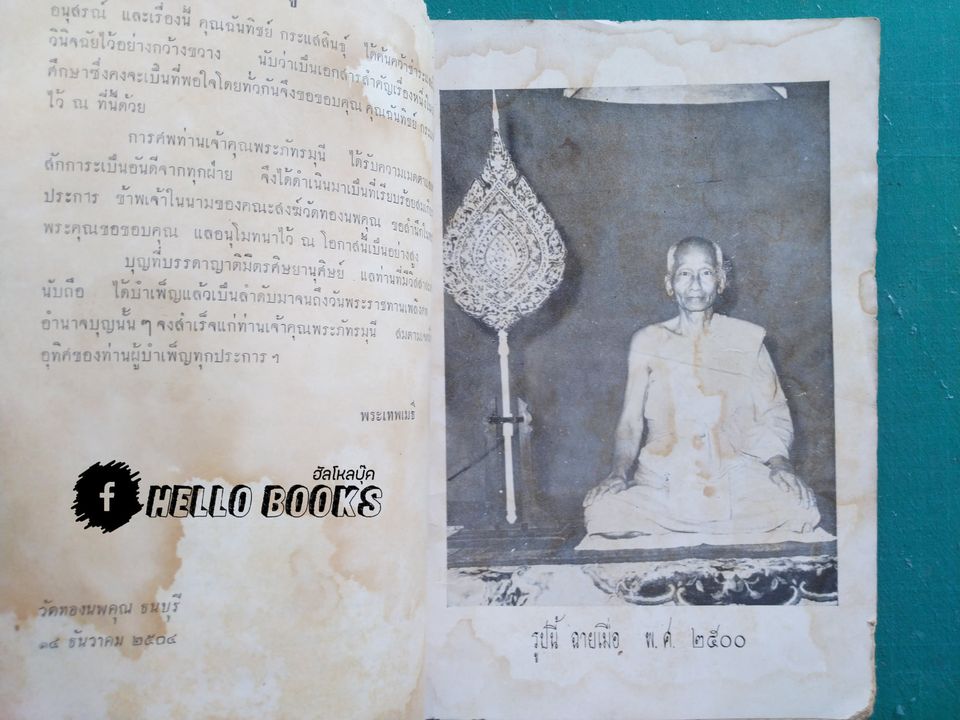 อนุสรณ์ และเรื่องนี้ คุณฉันทิชย์ กระแสสินธุ์ ได้ค้นคว้าชำระและ
วินิจฉัยไว้อย่างกว้างขวาง นับว่าเป็นเอกสารสำคัญเรื่องหนึ่ง
ศึกษาซึ่งคงจะเป็นที่พอใจโดยทั่วกันจึงขอขอบคุณ คุณฉันทิชย์
ไว้ ณ ที่นี้ด้วย
การศพท่านเจ้าคุณพระภัทรมุนี ได้รับความเมตตา
สักการะเป็นอันดีจากทุกฝ่าย จึงได้ดำเนินมาเป็นที่เรียบร้อย
ประการ ข้าพเจ้าในนามของคณะสงฆ์วัดทองนพคุณ ขอสำนึกใน
พระคุณขอขอบคุณ แลอนุโมทนาไว้ ณ โอกาสนี้เป็นอย่างสูง
บุญที่บรรดาญาติมิตรศิษยานุศิษย์ แลท่านที่มี
นับถือ ได้บำเพ็ญแล้วเป็นลำดับมาจนถึงวันพระราชทานเพลิง
อำนาจบุญนั้น ๆ จงสำเร็จแก่ท่านเจ้าคุณพระภัทรมุนี สมตาม
อุทิศของท่านผู้บำเพ็ญทุกประการ ฯ
พระเทพเมธี
ฮัลโหลบุ๊ค
f HELLO BOOKS
วัดทองนพคุณ ธนบุรี
๑๔ ธันวาคม ๒๕๐๔
รูปนี้ ฉายเมื่อ พ.ศ. ๒๕๐๐